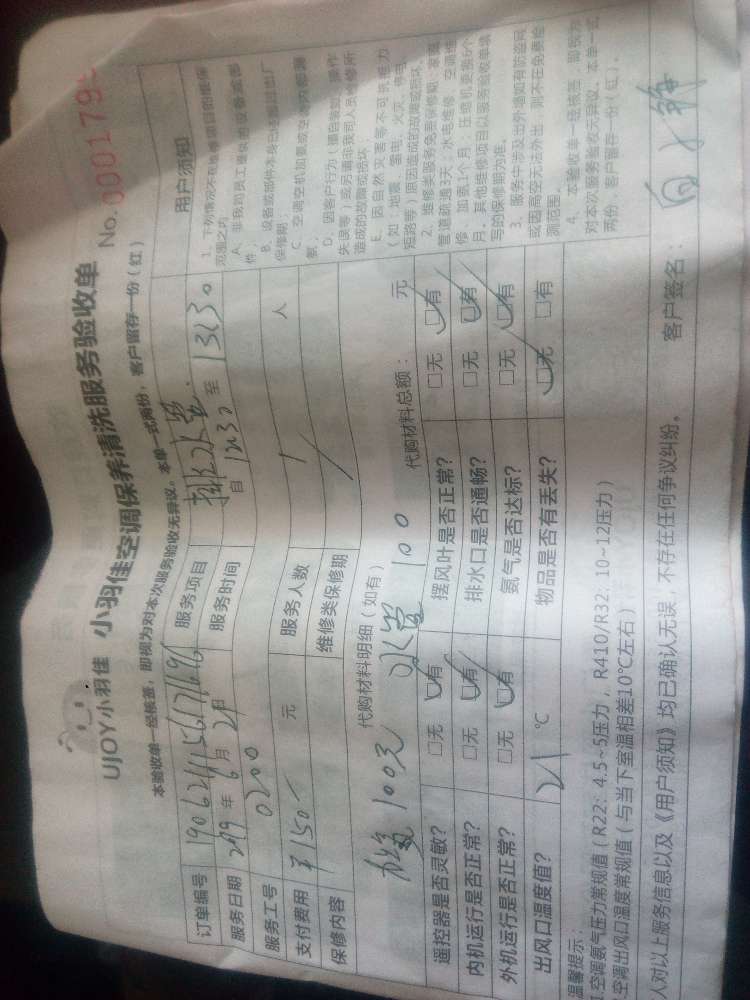 UJOY小羽佳 小羽佳空调保养清洗服务验收单 No. 000179
本验收单一经核签，即视为对本次服务验收无异议。本单一式两份，客户留存一份（红）
订单编号 服务项目 排水泵
服务日期 年 6 月 21 日 服务时间 自 1230 至 1330
服务工号 0200
支付费用 ¥150 元 服务人数 1 人
保修内容 维修类保修期
代购材料明细（如有） 代购材料总额： 元
100元 水泵 100
遥控器是否灵敏？ □无 □有 摆风叶是否正常？ □无 □有
内机运行是否正常？ □无 □有 排水口是否通畅？ □无 □有
外机运行是否正常？ □无 □有 氨气是否达标？ □无 □有
出风口温度值？ 21 ℃ 物品是否有丢失？ □无 □有
温馨提示：
空调氨气压力常规值（R22：4.5~5压力，R410/R32：10~12压力）
空调出风口温度常规值（与当下室温相差10℃左右）
人对以上服务信息以及《用户须知》均已确认无误，不存在任何争议纠纷。 客户签名：
用户须知
1、下列情况不在维修项目的维保
范围之内
A、非我司员工提供的设备或部
件；
B、设备或部件本身已经超过出厂
保修期；
D、因客户行为（擅自装卸、操作
失误等）或另请非我司人员维修所
造成的故障或损坏
E、因自然灾害等不可抗拒力
（如：地震、雷电、火灾、停电、
短路等）原因造成的故障或损坏。
2、维修类服务免费保修期：家庭
管道疏通3天；水电维修、空调维
修、加氨1个月；压缩机更换6个
月，其他维修项目以服务验收单填
写的保修期为准。
3、服务中涉及出外墙如有防盗网
或因高空无法外出，则不在免费检
测范围。
4、本验收单一经核签，即视为
对本次服务验收无异议。本单一式
两份，客户留存一份（红）。